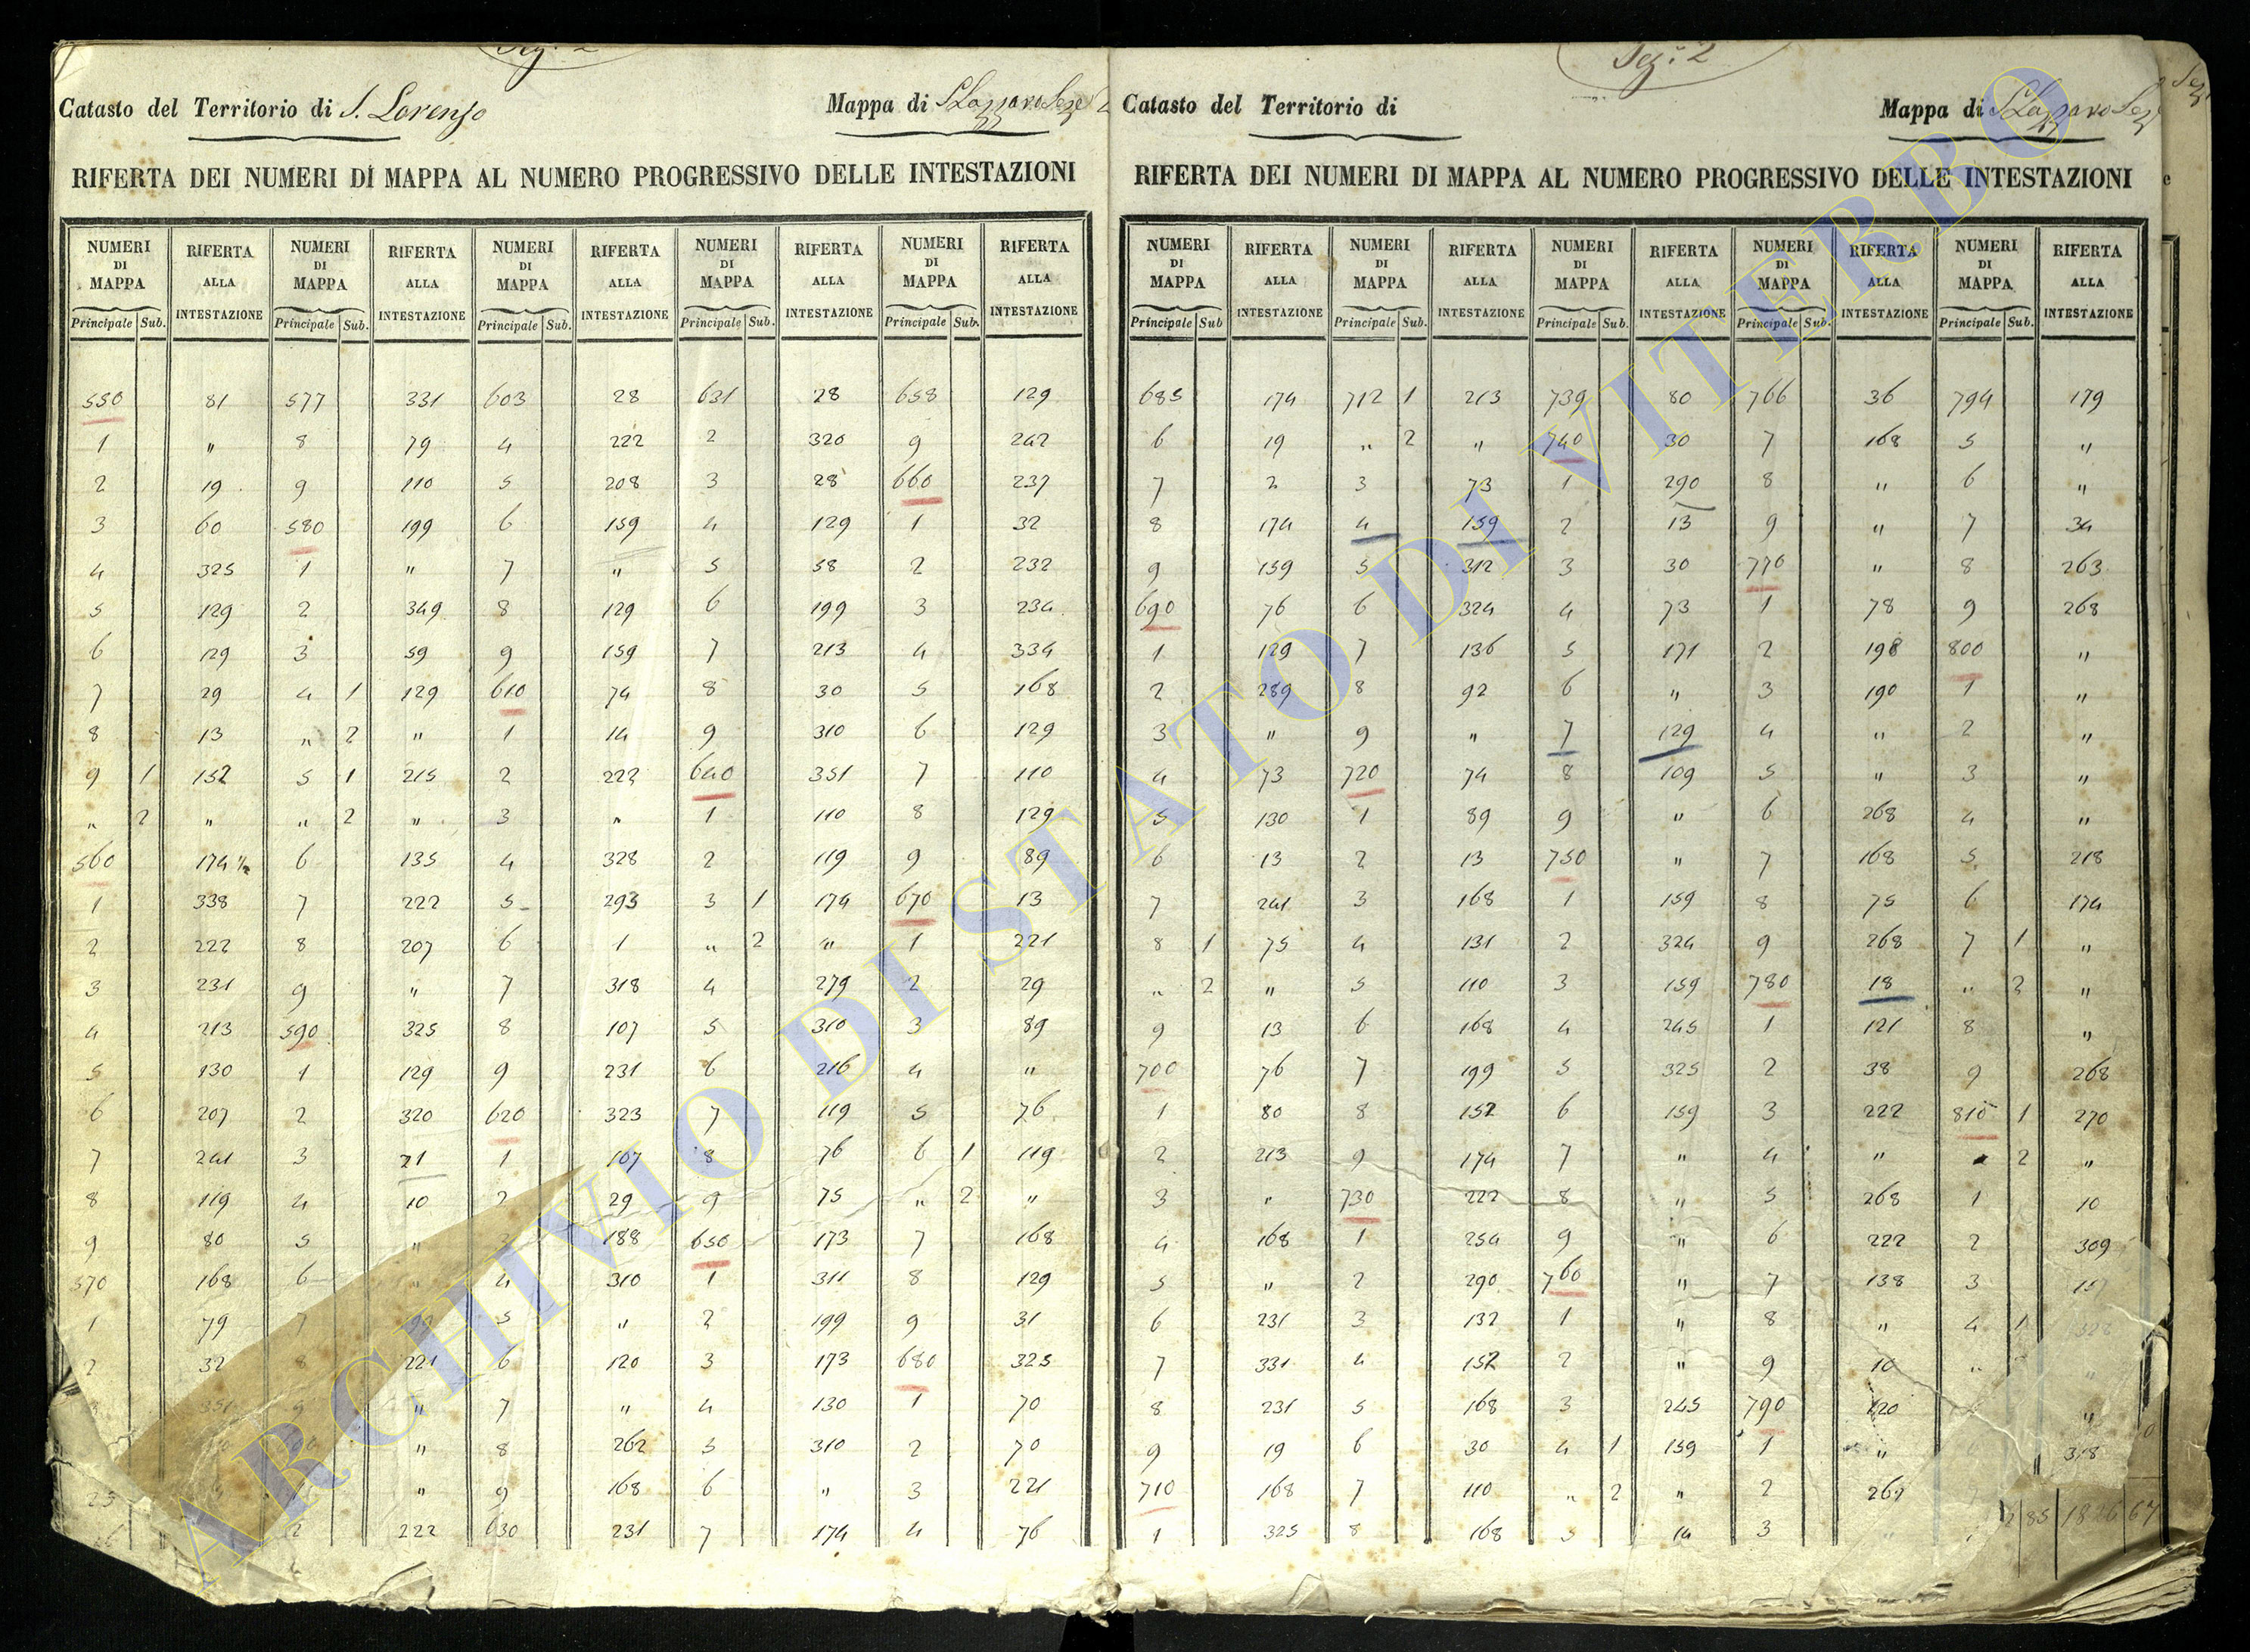 Catasto del Territorio di S. Lorenzo Mappa di S Lazzaro Seze 2
RIFERTA DEI NUMERI DI MAPPA AL NUMERO PROGRESSIVO DELLE INTESTAZIONI
NUMERI DI MAPPA RIFERTA ALLA INTESTAZIONE NUMERI DI MAPPA RIFERTA ALLA INTESTAZIONE NUMERI DI MAPPA RIFERTA ALLA INTESTAZIONE NUMERI DI MAPPA RIFERTA ALLA INTESTAZIONE NUMERI DI MAPPA RIFERTA ALLA INTESTAZIONE
Principale Sub. Principale Sub. Principale Sub. Principale Sub. Principale Sub.
550 81 577 331 603 28 631 28 658 129
1 " 8 79 4 222 2 320 9 242
2 19 9 110 5 208 3 28 660 237
3 60 580 199 6 159 4 129 1 32
4 325 1 " 7 " 5 58 2 232
5 129 2 349 8 129 6 199 3 234
6 129 3 59 9 159 7 213 4 334
7 29 4 1 129 610 74 8 30 5 168
8 13 " 2 " 1 14 9 310 6 129
9 1 152 5 1 215 2 222 640 351 7 110
" 2 " " 2 " 3 " 1 110 8 129
560 174 ½ 6 135 4 328 2 119 9 89
1 338 7 222 5 293 3 1 174 670 13
2 222 8 207 6 1 " 2 " 1 221
3 231 9 " 7 318 4 279 2 29
4 213 590 325 8 107 5 310 3 89
5 130 1 129 9 231 6 216 4 "
6 207 2 320 620 323 7 119 5 76
7 241 3 21 1 107 8 76 6 1 119
8 119 4 10 2 29 9 75 " 2 "
9 80 5 " 3 188 650 173 7 168
570 168 6 " 4 310 1 311 8 129
1 79 7 5 " 2 199 9 31
2 32 8 221 6 120 3 173 680 325
9 " 7 " 4 130 1 70
" 8 262 5 310 2 70
" 9 168 6 " 3 221
2 222 630 231 7 174 4 76
Sez. 2
Catasto del Territorio di Mappa di S Lazzaro Sez
RIFERTA DEI NUMERI DI MAPPA AL NUMERO PROGRESSIVO DELLE INTESTAZIONI
NUMERI DI MAPPA RIFERTA ALLA INTESTAZIONE NUMERI DI MAPPA RIFERTA ALLA INTESTAZIONE NUMERI DI MAPPA RIFERTA ALLA INTESTAZIONE NUMERI DI MAPPA RIFERTA ALLA INTESTAZIONE NUMERI DI MAPPA RIFERTA ALLA INTESTAZIONE
Principale Sub Principale Sub. Principale Sub. Principale Sub. Principale Sub.
685 174 712 1 213 739 80 766 36 794 179
6 19 " 2 " 740 30 7 168 5 "
7 2 3 73 1 290 8 " 6 "
8 174 4 159 2 13 9 " 7 34
9 159 5 312 3 30 770 " 8 263
690 76 6 324 4 73 1 78 9 268
1 129 7 136 5 171 2 198 800 "
2 289 8 92 6 " 3 190 1 "
3 " 9 " 7 129 4 " 2 "
4 73 720 74 8 109 5 " 3 "
5 130 1 89 9 " 6 268 4 "
6 13 2 13 750 " 7 168 5 218
7 241 3 168 1 159 8 75 6 174
8 1 75 4 131 2 324 9 268 7 1 "
" 2 " 5 110 3 159 780 18 " 2 "
9 13 6 168 4 245 1 121 8 "
700 76 7 199 5 325 2 38 9 268
1 80 8 152 6 159 3 222 810 1 270
2 213 9 174 7 " 4 " " 2 "
3 " 730 222 8 " 5 268 1 10
4 168 1 254 9 " 6 222 2 309
5 " 2 290 760 " 7 138 3
6 231 3 132 1 " 8 " 4 1 328
7 331 4 152 2 " 9 10 "
8 231 5 168 3 245 790 120 "
9 19 6 30 4 1 159 1 " 318
710 168 7 110 " 2 " 2 269
1 325 8 168 5 14 3
ARCHIVIO DI STATO DI VITERBO